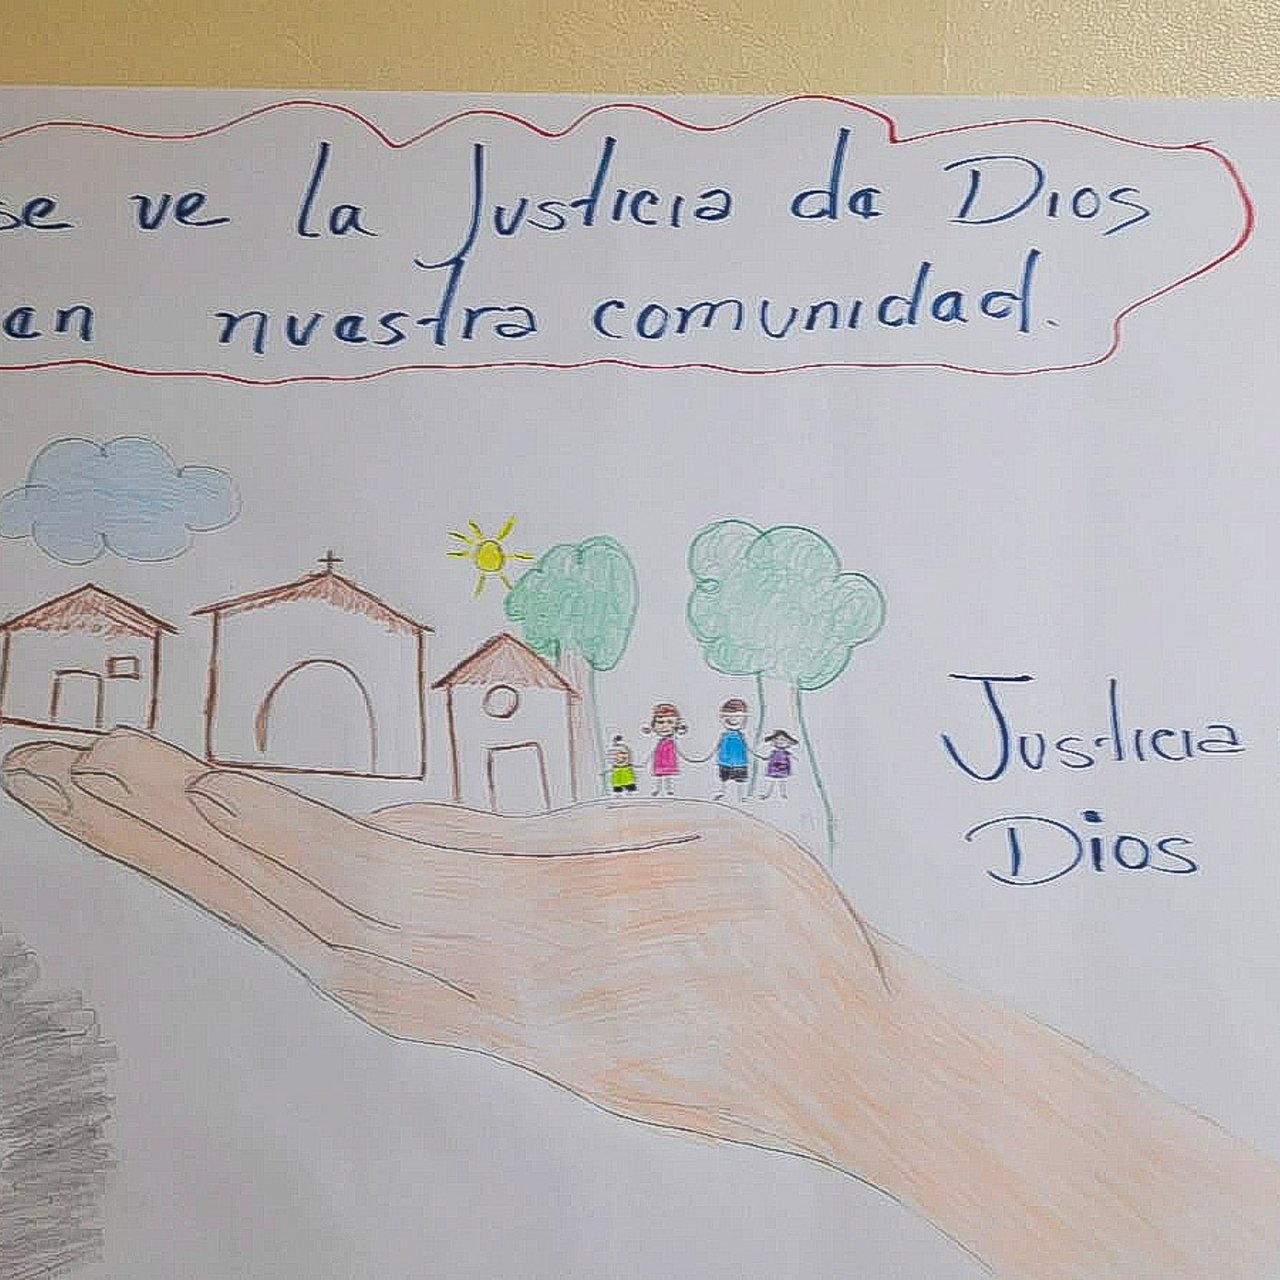 se ve la Justicia de Dios
en nuestra comunidad.
Justicia
Dios